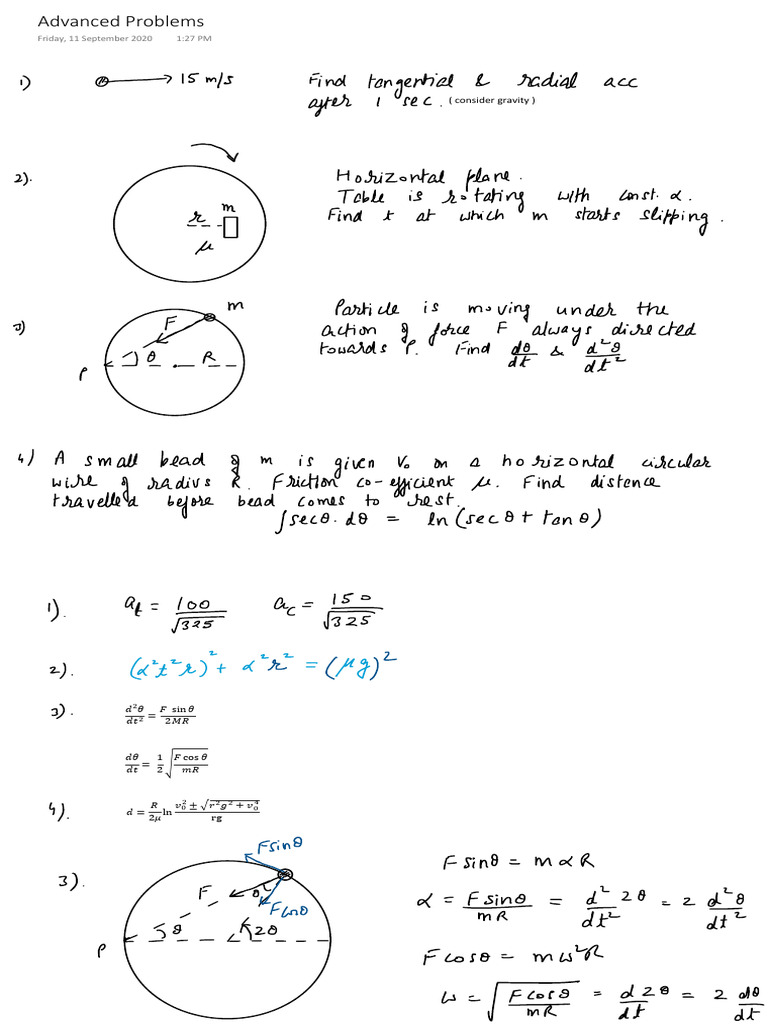 Advanced Problems
Friday, 11 September 2020 1:27 PM
1) → 15 m/s Find tangential & radial acc
after 1 sec. ( consider gravity )
2). Horizontal plane.
Table is rotating with const. α.
Find t at which m starts slipping.
r m
μ
3) Particle is moving under the
action of force F always directed
towards P. Find dθ/dt & d²θ/dt²
m
F
P θ R
4) A small bead of m is given v₀ on a horizontal circular
wire of radius R. Friction co-efficient μ. Find distence
travelled before bead comes to rest.
∫secθ.dθ = ln(secθ + tanθ)
1). a_t = 100/√325 a_c = 150/√325
2). (α²t²r)² + α²r² = (μg)²
3). d²θ/dt² = F sin θ/2MR
dθ/dt = 1/2 √(F cos θ/mR)
4). d = R/2μ ln (v₀² ± √(r²g² + v₀⁴))/rg
3).
Fsinθ
F θ
Fcosθ
P θ 2θ
Fsinθ = mαR
α = Fsinθ/mR = d²2θ/dt² = 2 d²θ/dt²
Fcosθ = mω²R
ω = √(Fcosθ/mR) = d2θ/dt = 2 dθ/dt